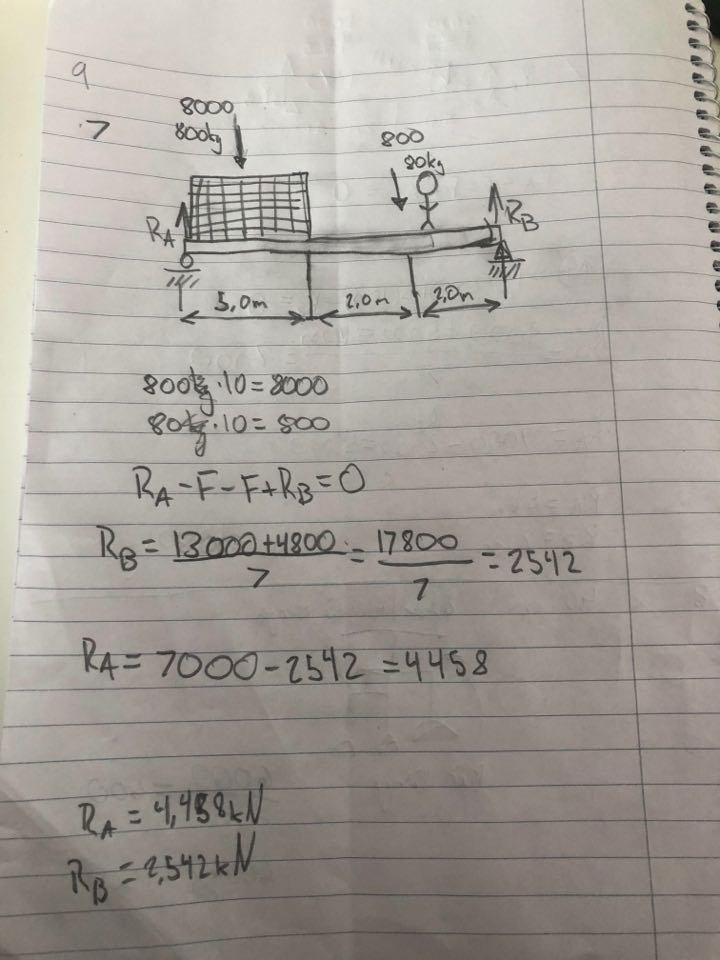 9
.7
8000
800kg
800
80kg
RA
RB
3,0m
2,0m
2,0m
800kg·10=8000
80kg·10=800
RA-F-F+RB=0
RB=13000+4800/7=17800/7=2542
RA=7000-2542=4458
RA=4,458kN
RB=2,542kN